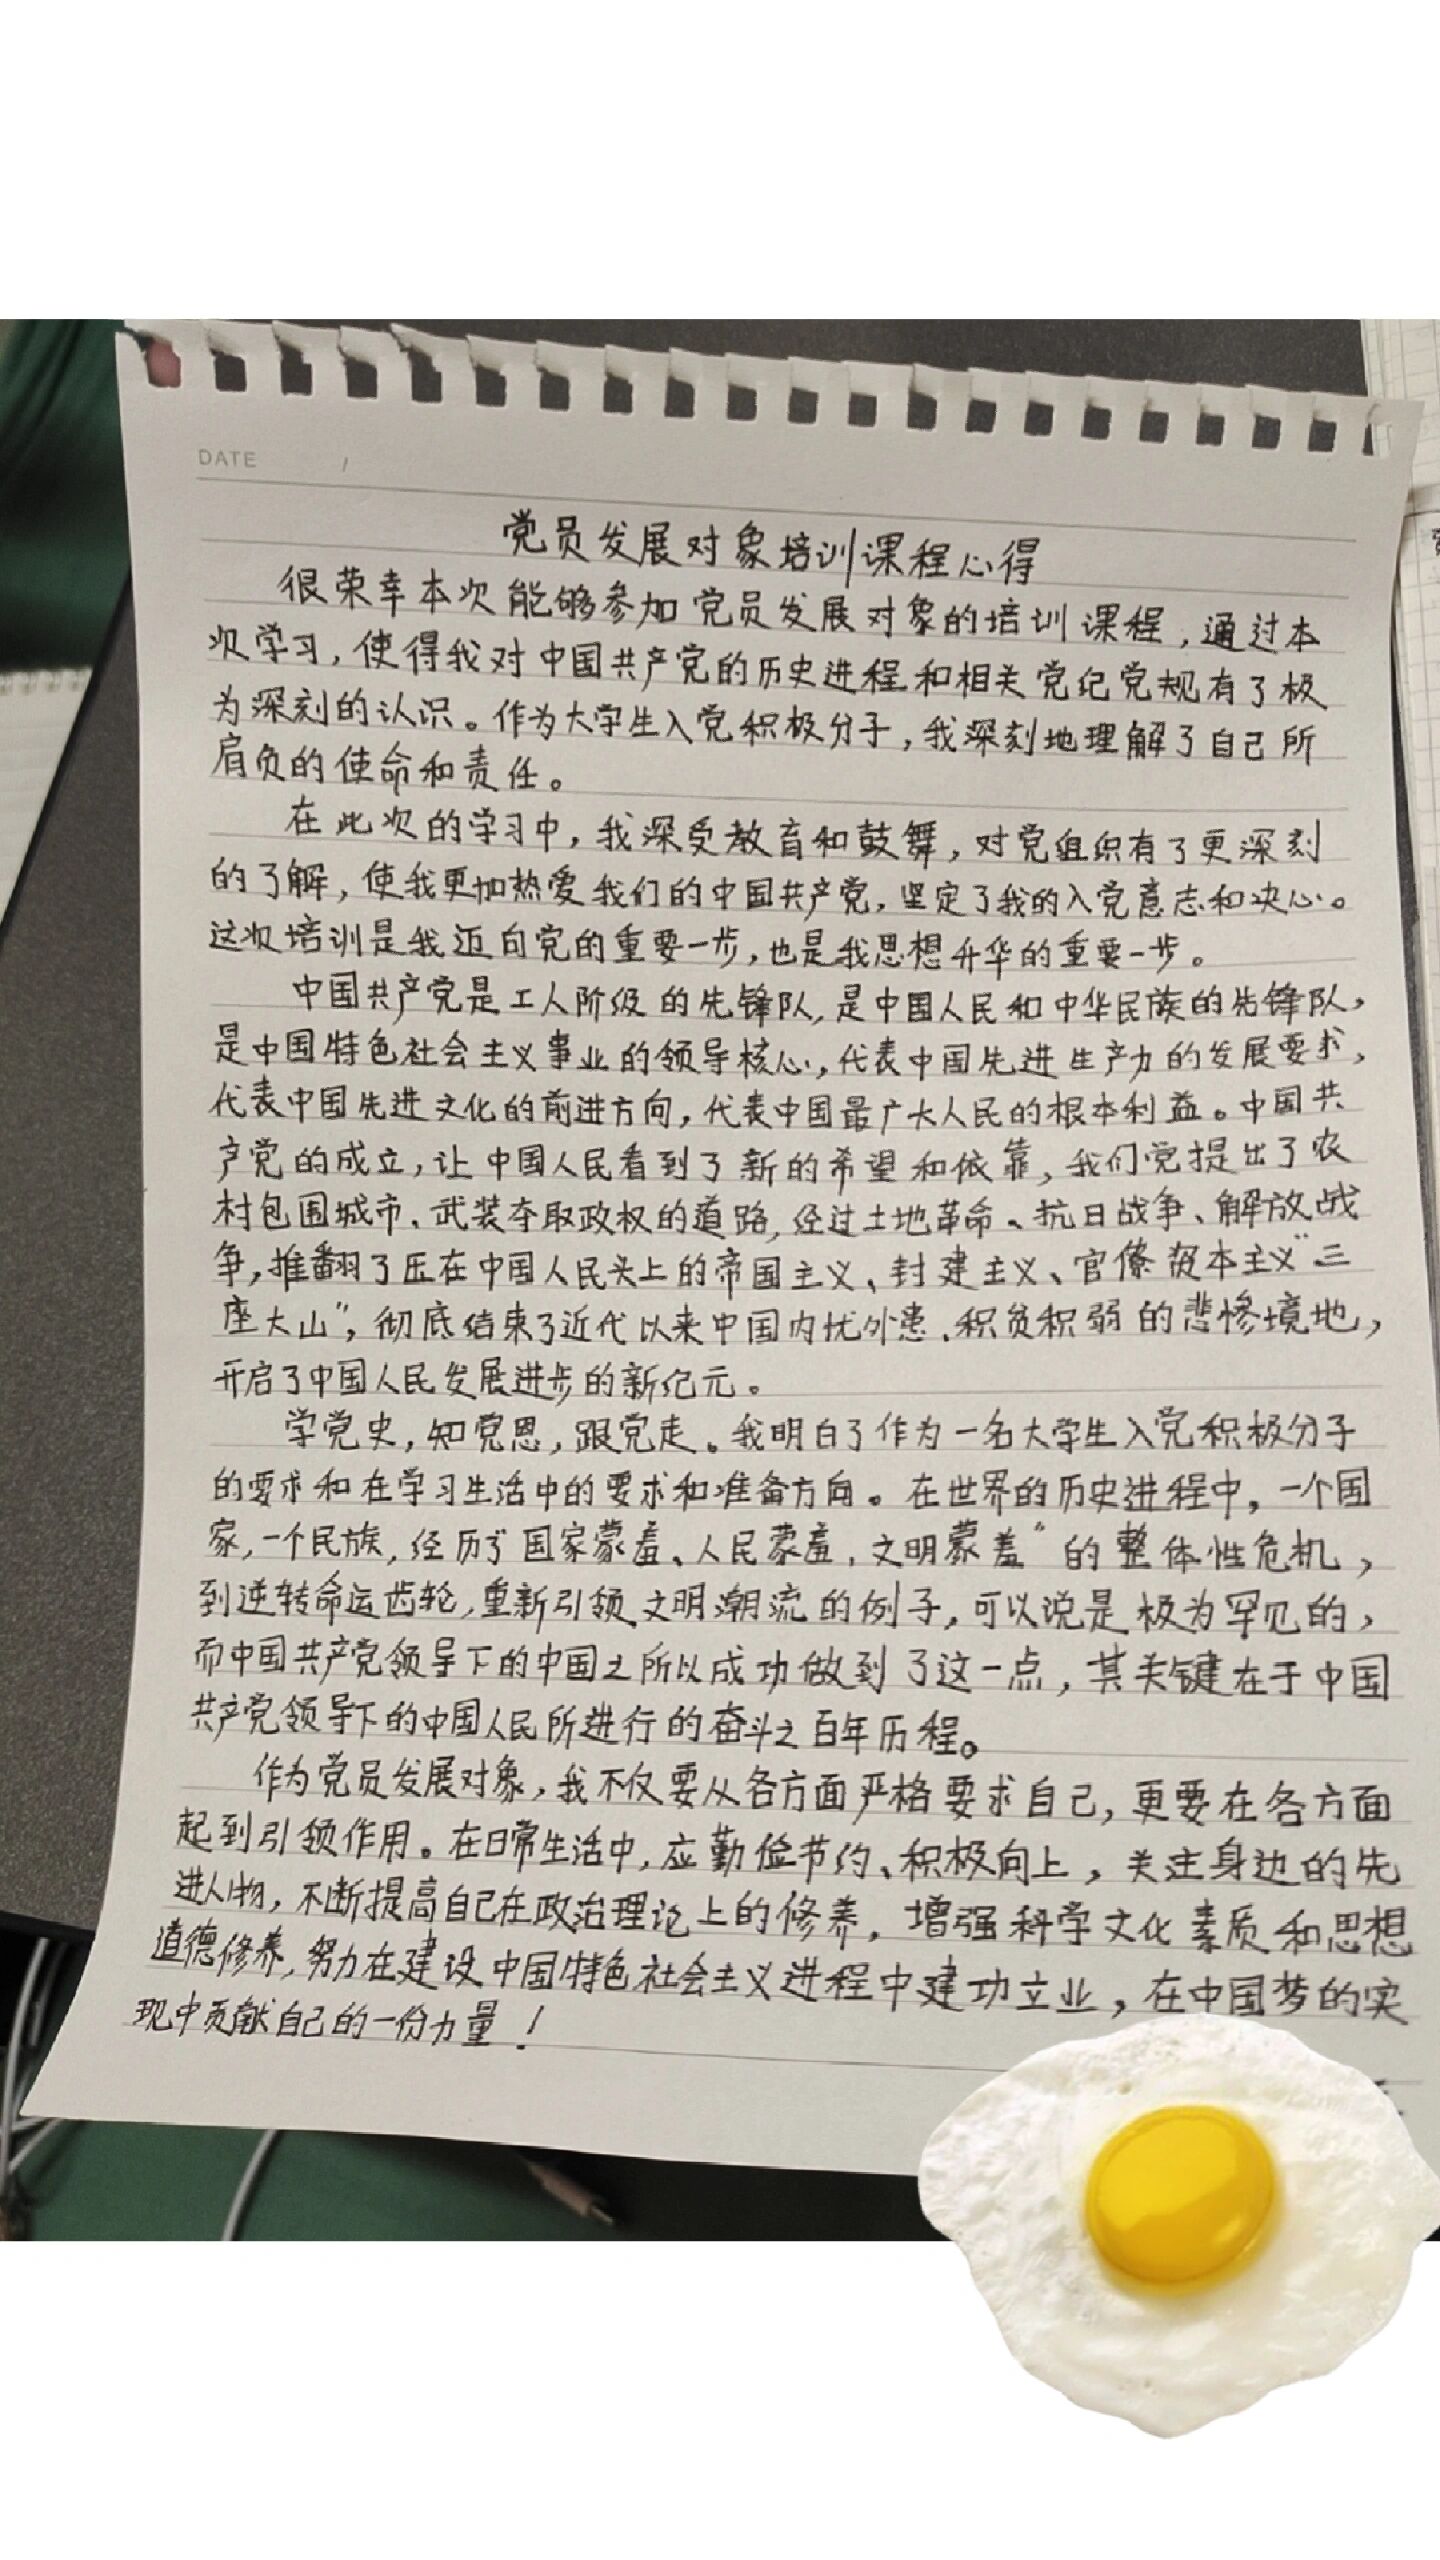 DATE /
党员发展对象培训课程心得
很荣幸本次能够参加党员发展对象的培训课程，通过本
次学习，使得我对中国共产党的历史进程和相关党纪党规有了极
为深刻的认识。作为大学生入党积极分子，我深刻地理解了自己所
肩负的使命和责任。
在此次的学习中，我深受教育和鼓舞，对党组织有了更深刻
的了解，使我更加热爱我们的中国共产党，坚定了我的入党意志和决心。
这次培训是我迈向党的重要一步，也是我思想升华的重要一步。
中国共产党是工人阶级的先锋队，是中国人民和中华民族的先锋队，
是中国特色社会主义事业的领导核心，代表中国先进生产力的发展要求，
代表中国先进文化的前进方向，代表中国最广大人民的根本利益。中国共
产党的成立，让中国人民看到了新的希望和依靠，我们党提出了农
村包围城市、武装夺取政权的道路，经过土地革命、抗日战争、解放战
争，推翻了压在中国人民头上的帝国主义、封建主义、官僚资本主义“三
座大山”，彻底结束了近代以来中国内忧外患、积贫积弱的悲惨境地，
开启了中国人民发展进步的新纪元。
学党史，知党恩，跟党走。我明白了作为一名大学生入党积极分子
的要求和在学习生活中的要求和准备方向。在世界的历史进程中，一个国
家，一个民族，经历了“国家蒙羞、人民蒙羞，文明蒙羞”的整体性危机，
到逆转命运齿轮，重新引领文明潮流的例子，可以说是极为罕见的，
而中国共产党领导下的中国之所以成功做到了这一点，其关键在于中国
共产党领导下的中国人民所进行的奋斗之百年历程。
作为党员发展对象，我不仅要从各方面严格要求自己，更要在各方面
起到引领作用。在日常生活中，应勤俭节约、积极向上，关注身边的先
进人物，不断提高自己在政治理论上的修养，增强科学文化素质和思想
道德修养，努力在建设中国特色社会主义进程中建功立业，在中国梦的实
现中贡献自己的一份力量！